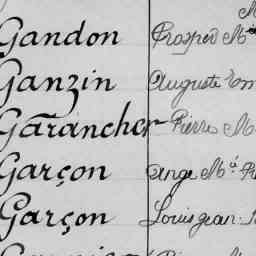 Gandon Prosper M
Ganzin Auguste Em
Garancher Pierre M
Garçon Ange Mª
Garçon Louis Jean